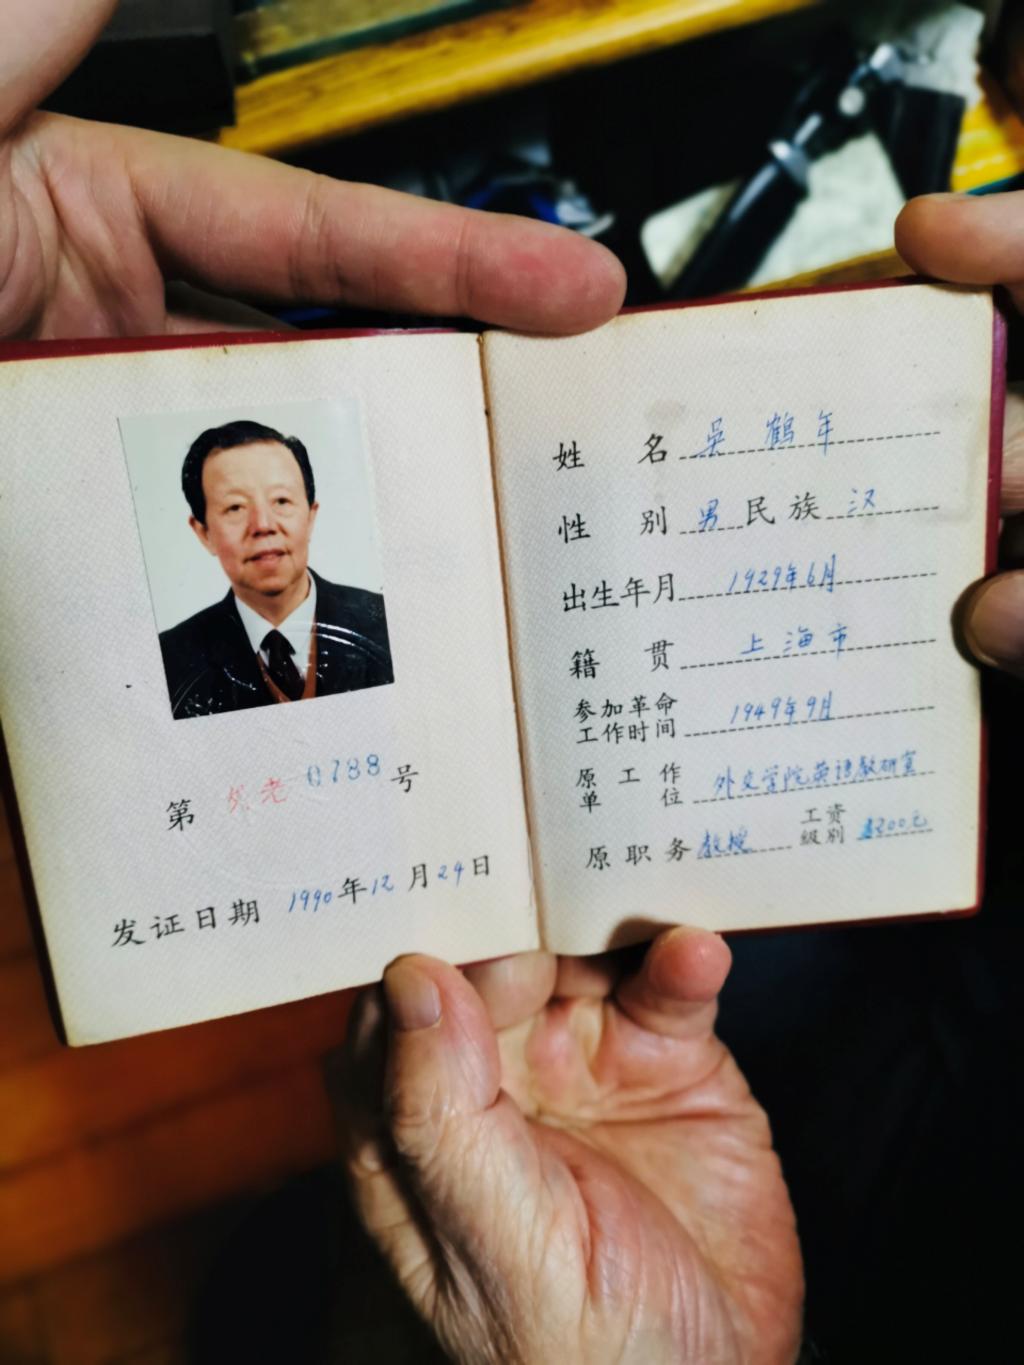 第 外老 0788 号
发证日期 1990年12月24日
姓名 吴鹤年
性别 男 民族 汉
出生年月 1929年6月
籍贯 上海市
参加革命工作时间 1949年9月
原工作单位 外交学院英语教研室
原职务 教授 工资级别 200元